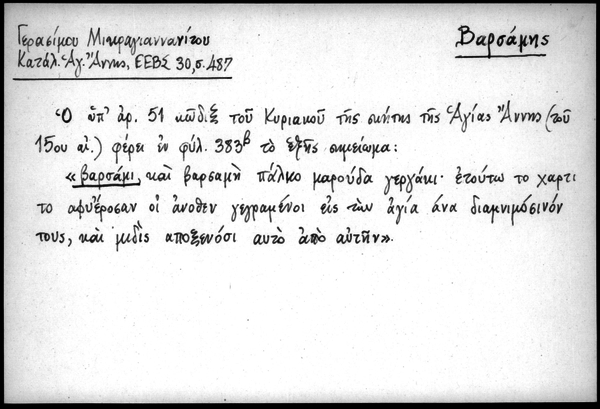 Γερασίμου Μικραγιαννανίτου
Κατάλ. Ἁγ. Ἄννης, ΕΕΒΣ 30, σ. 487
Βαρσάμης
Ὁ ὑπ' ἀρ. 51 κῶδιξ τοῦ Κυριακοῦ τῆς σκήτης τῆς Ἁγίας Ἄννης (τοῦ
15ου αἰ.) φέρει ἐν φύλ. 383β τὸ ἑξῆς σημείωμα:
«βαρσάμι, καὶ βαρσαμὴ πάλκο μαρούδα γεργάκι· ἐτούτω το χαρτι
το αφυἐροσαν οἱ ἄνοθεν γεγραμένοι εἰς τὼν ἁγία άνα διαμνιμόσινόν
τους, καὶ μιδὶς αποξενόσι αυτὸ ἀπὸ αὐτῆν».